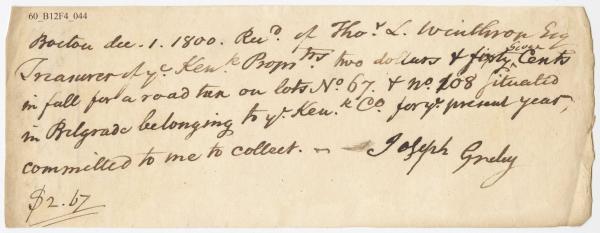 60_B12F4_044
Boston dec. 1. 1800. Recd. of Thos. L. Winthrop Esq
Treasurer of ye. Kenk. Proptrs two dollars & sixty seven Cents
in full for a road tax on lots No. 67. & no. 108 Situated
in Belgrade belonging to ye. Kenk. Co. for ye. present year,
committed to me to collect. — Joseph Greley
$2.67